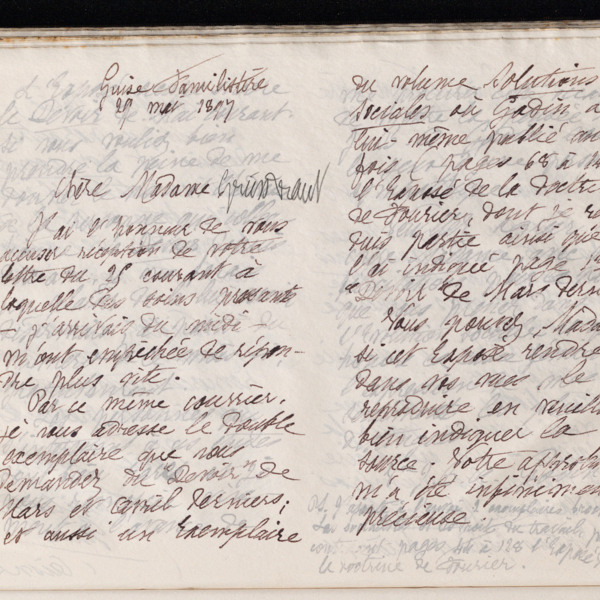 Guise Familistère
29 mai 1897
Chère Madame
J'ai l'honneur de vous
accuser réception de votre
lettre du 25 courant à
laquelle des soins pressants
— j'arrivais du midi —
m'ont empêchée de répon-
dre plus vite.
Par ce même courrier,
je vous adresse le double
exemplaire que vous
demandez du "Devoir" de
Mars et avril derniers;
et aussi un Exemplaire
du volume Solutions
Sociales où Godin a
lui-même publié
fois, pages 68 à
l'Exposé de la
de Fourier, dont je
duis partie ainsi que
l'ai indiqué page
"Devoir" de Mars
Vous pouvez,
si cet Exposé
dans vos vues le
reproduire en
bien indiquer la
source. Votre
m'a été
précieuse
pages à 128
le doctrine de Fourier.